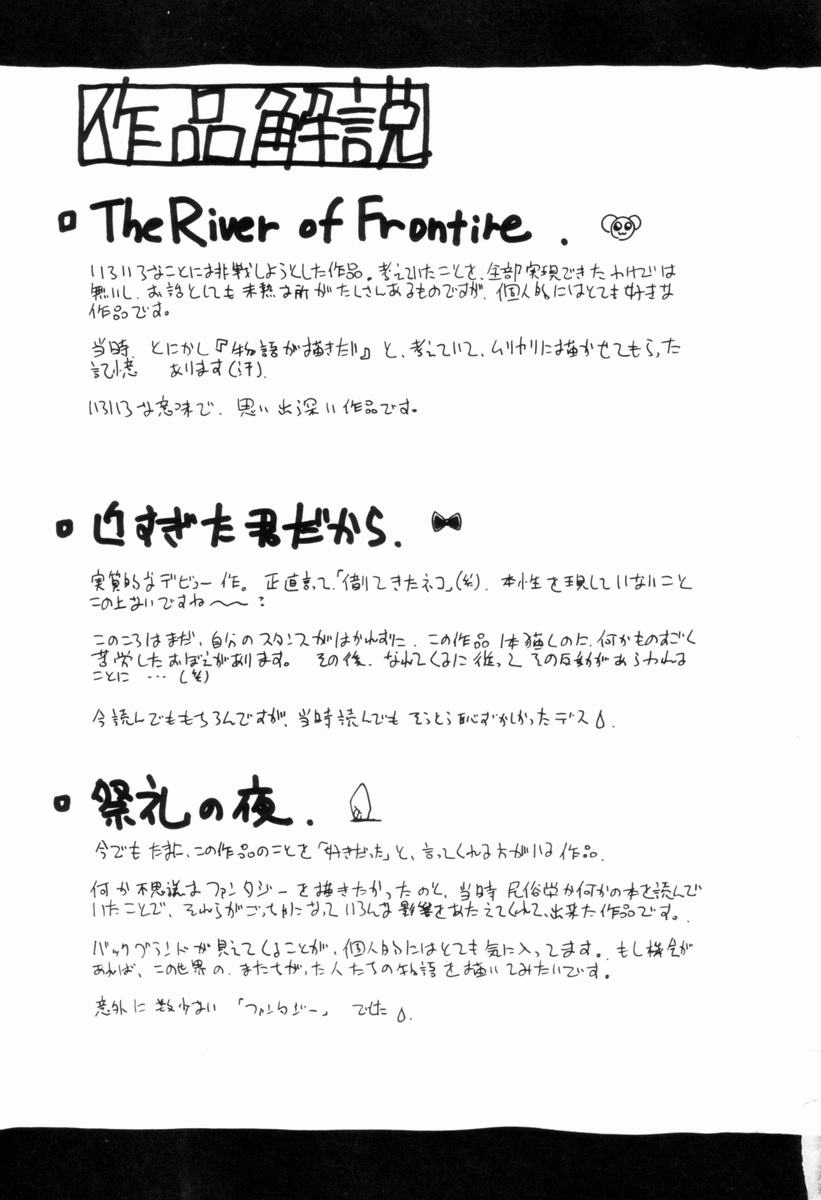 作品解説
The River of Frontire .
いろいろなことに挑戦しようとした作品。考えていたことを、全部実現できたわけでは
無いし、お話としても未熟な所がたくさんあるものですが、個人的にはとても好きな
作品です。
当時、とにかく『物語が描きたい』と、考えていて、ムリヤリに描かせてもらった
記憶 あります(汗).
いろいろな意味で、思い出深い作品です。
近すぎた君だから.
実質的なデビュー作。正直言って、「借りてきたネコ」(笑). 本性を現していないこと
この上ないですね〜〜?
このころはまだ、自分のスタンスがはかれずに、この作品 描くのに、何かものすごく
苦労したおぼえがあります。 その後、なれてくるに従って その反動があらわれる
ことに …(笑)
今読んでももちろんですが、当時読んでも そうとう恥ずかしかったデス.
祭礼の夜.
今でも たまに、この作品のことを「好きだった」と、言ってくれる方がいる作品.
何か不思議なファンタジーを描きたかったのと、当時 民俗学か何かの本を読んで
いたことで、それらがごっちゃになって いろんな影響をあたえてくれて、出来た作品です。
バックグランドが見えてくることが、個人的にはとても気に入ってます。もし機会が
あれば、この世界の、またちがった人たちの物語を描いてみたいです。
意外に数少ない 「ファンタジー」 でした.